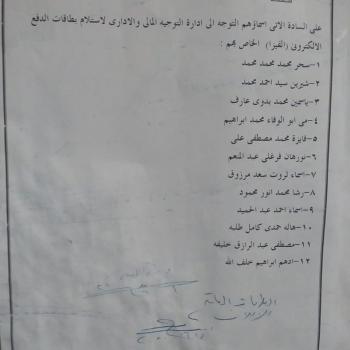 على السادة الاتى اسماؤهم التوجه الى ادارة التوجيه المالى والادارى لاستلام بطاقات الدفع
الالكترونى (الفيزا) الخاص بهم :
١- سحر محمد محمد محمد
٢- شيرين سيد احمد محمد
٣- ياسمين محمد بدوى عارف
٤- مى ابو الوفاء محمد ابراهيم
٥- فايزة محمد مصطفى على
٦- نورهان فرغلى عبد المنعم
٧- اسماء ثروت سعد مرزوق
٨- رشا محمد انور محمود
٩- اسماء احمد عبد الحميد
١٠- هاله حمدى كامل طلبه
١١- مصطفى عبد الرازق خليفه
١٢- ادهم ابراهيم خلف الله